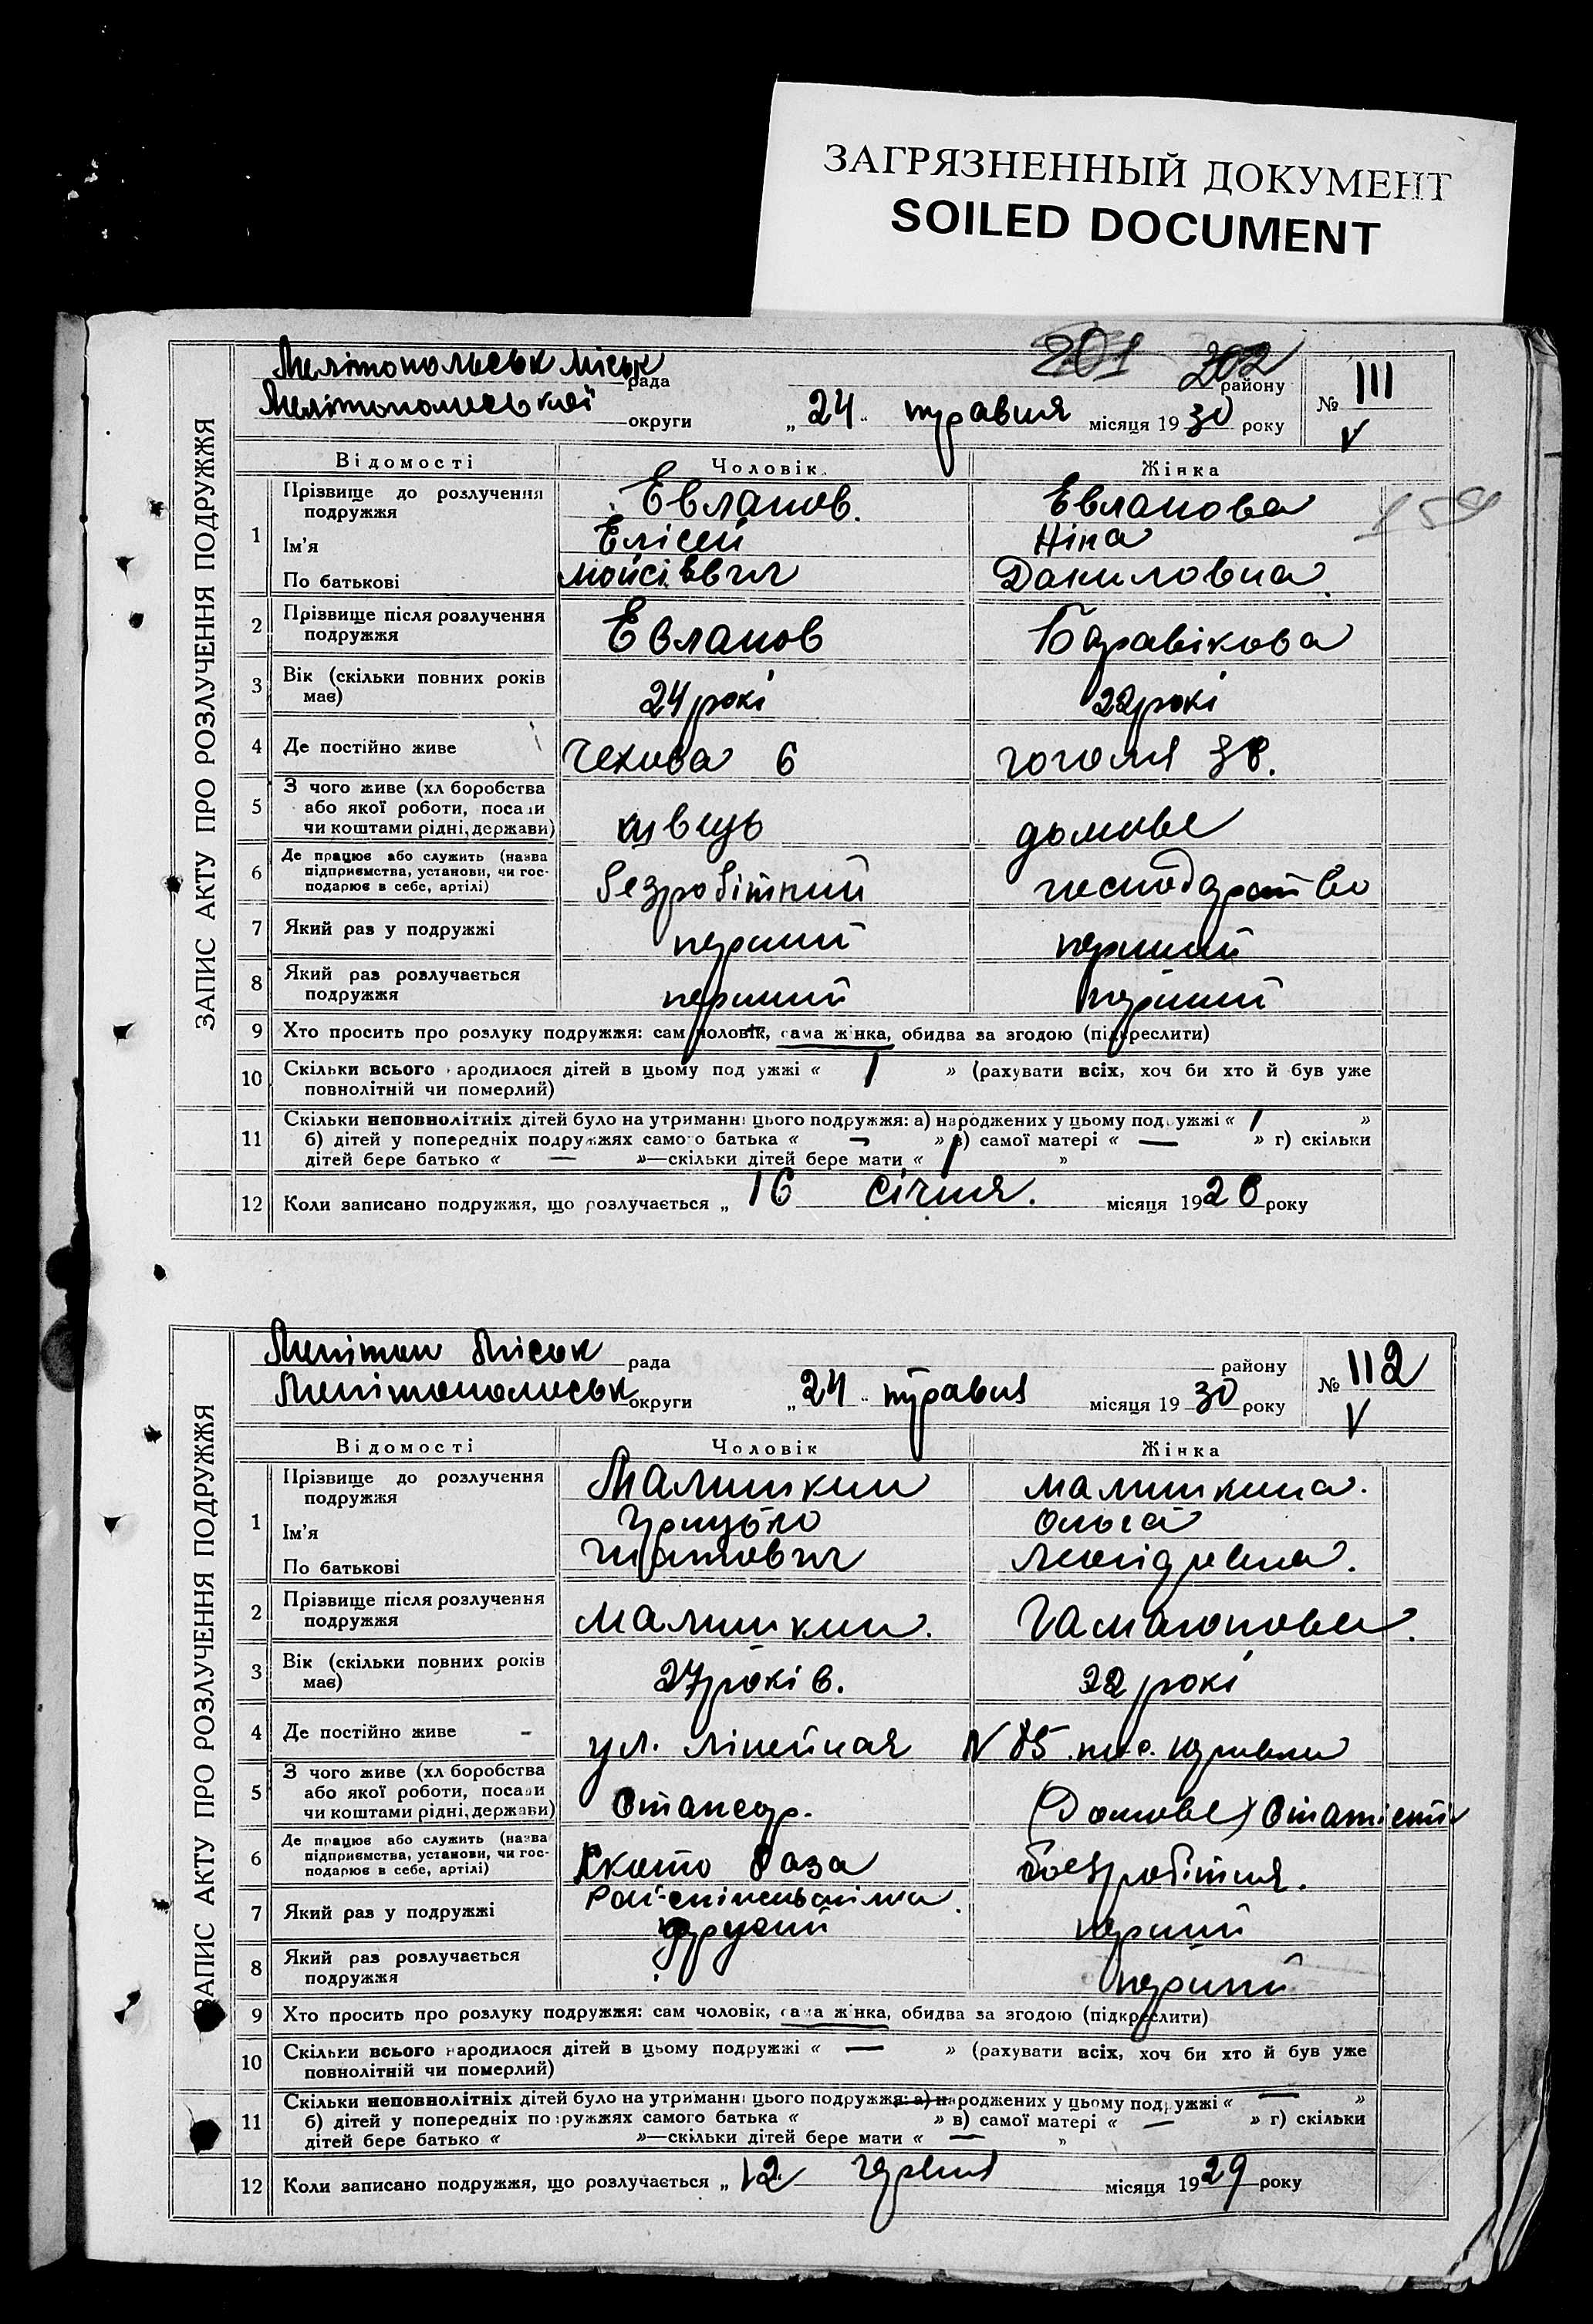 ЗАГРЯЗНЕННЫЙ ДОКУМЕНТ
SOILED DOCUMENT
201 202
ЗАПИС АКТУ ПРО РОЗЛУЧЕННЯ ПОДРУЖЖЯ
Мелітопольськ міськ рада району № 111
Мелітопольської округи „24" травня місяця 1930 року V
Відомості Чоловік Жінка
1 Прізвище до розлучення подружжя Евланов. Евланова
Ім'я Елісей Ніна
По батькові Мойсієвич Даниловна
2 Прізвище після розлучення подружжя Евланов
3 Вік (скільки повних років має) 24 рокі 22 рокі
4 Де постійно живе Чехова 6 Гоголя 38.
5 З чого живе (хлiборобства або якої роботи, посади чи коштами рідні, держави) швець домове
6 Де працює або служить (назва підприємства, установи, чи господарює в себе, артілі) безробітний господарство
7 Який раз у подружжі перший перший
8 Який раз розлучається подружжя перший перший
9 Хто просить про розлуку подружжя: сам чоловік, сама жінка, обидва за згодою (підкреслити)
10 Скільки всього народилося дітей в цьому подружжі « 1 » (рахувати всіх, хоч би хто й був уже повнолітній чи померлий)
11 Скільки неповнолітніх дітей було на утриманні цього подружжя: а) народжених у цьому подружжі « 1 »
б) дітей у попередніх подружжях самого батька « — » в) самої матері « — » г) скільки
дітей бере батько « — »—скільки дітей бере мати « 1 »
12 Коли записано подружжя, що розлучається „ 16 січня. місяця 1926 року
ЗАПИС АКТУ ПРО РОЗЛУЧЕННЯ ПОДРУЖЖЯ
Мелітоп Міськ рада району № 112
Мелітопольськ округи „24" травня місяця 1930 року V
Відомості Чоловік Жінка
1 Прізвище до розлучення подружжя Малишкин Малишкина.
Ім'я Грицько Ольга
По батькові
2 Прізвище після розлучення подружжя Малишкин.
3 Вік (скільки повних років має) 27 років. 22 рокі
4 Де постійно живе ул. Лінейная N 85
5 З чого живе (хлiборобства або якої роботи, посади чи коштами рідні, держави) (Домове)
6 Де працює або служить (назва підприємства, установи, чи господарює в себе, артілі) Ското база безробітня.
7 Який раз у подружжі другий перший
8 Який раз розлучається подружжя перший
9 Хто просить про розлуку подружжя: сам чоловік, сама жінка, обидва за згодою (підкреслити)
10 Скільки всього народилося дітей в цьому подружжі « — » (рахувати всіх, хоч би хто й був уже повнолітній чи померлий)
11 Скільки неповнолітніх дітей було на утриманні цього подружжя: а) народжених у цьому подружжі « — »
б) дітей у попередніх подружжях самого батька « » в) самої матері « — » г) скільки
дітей бере батько « »—скільки дітей бере мати « — »
12 Коли записано подружжя, що розлучається „ 12 червня місяця 1929 року